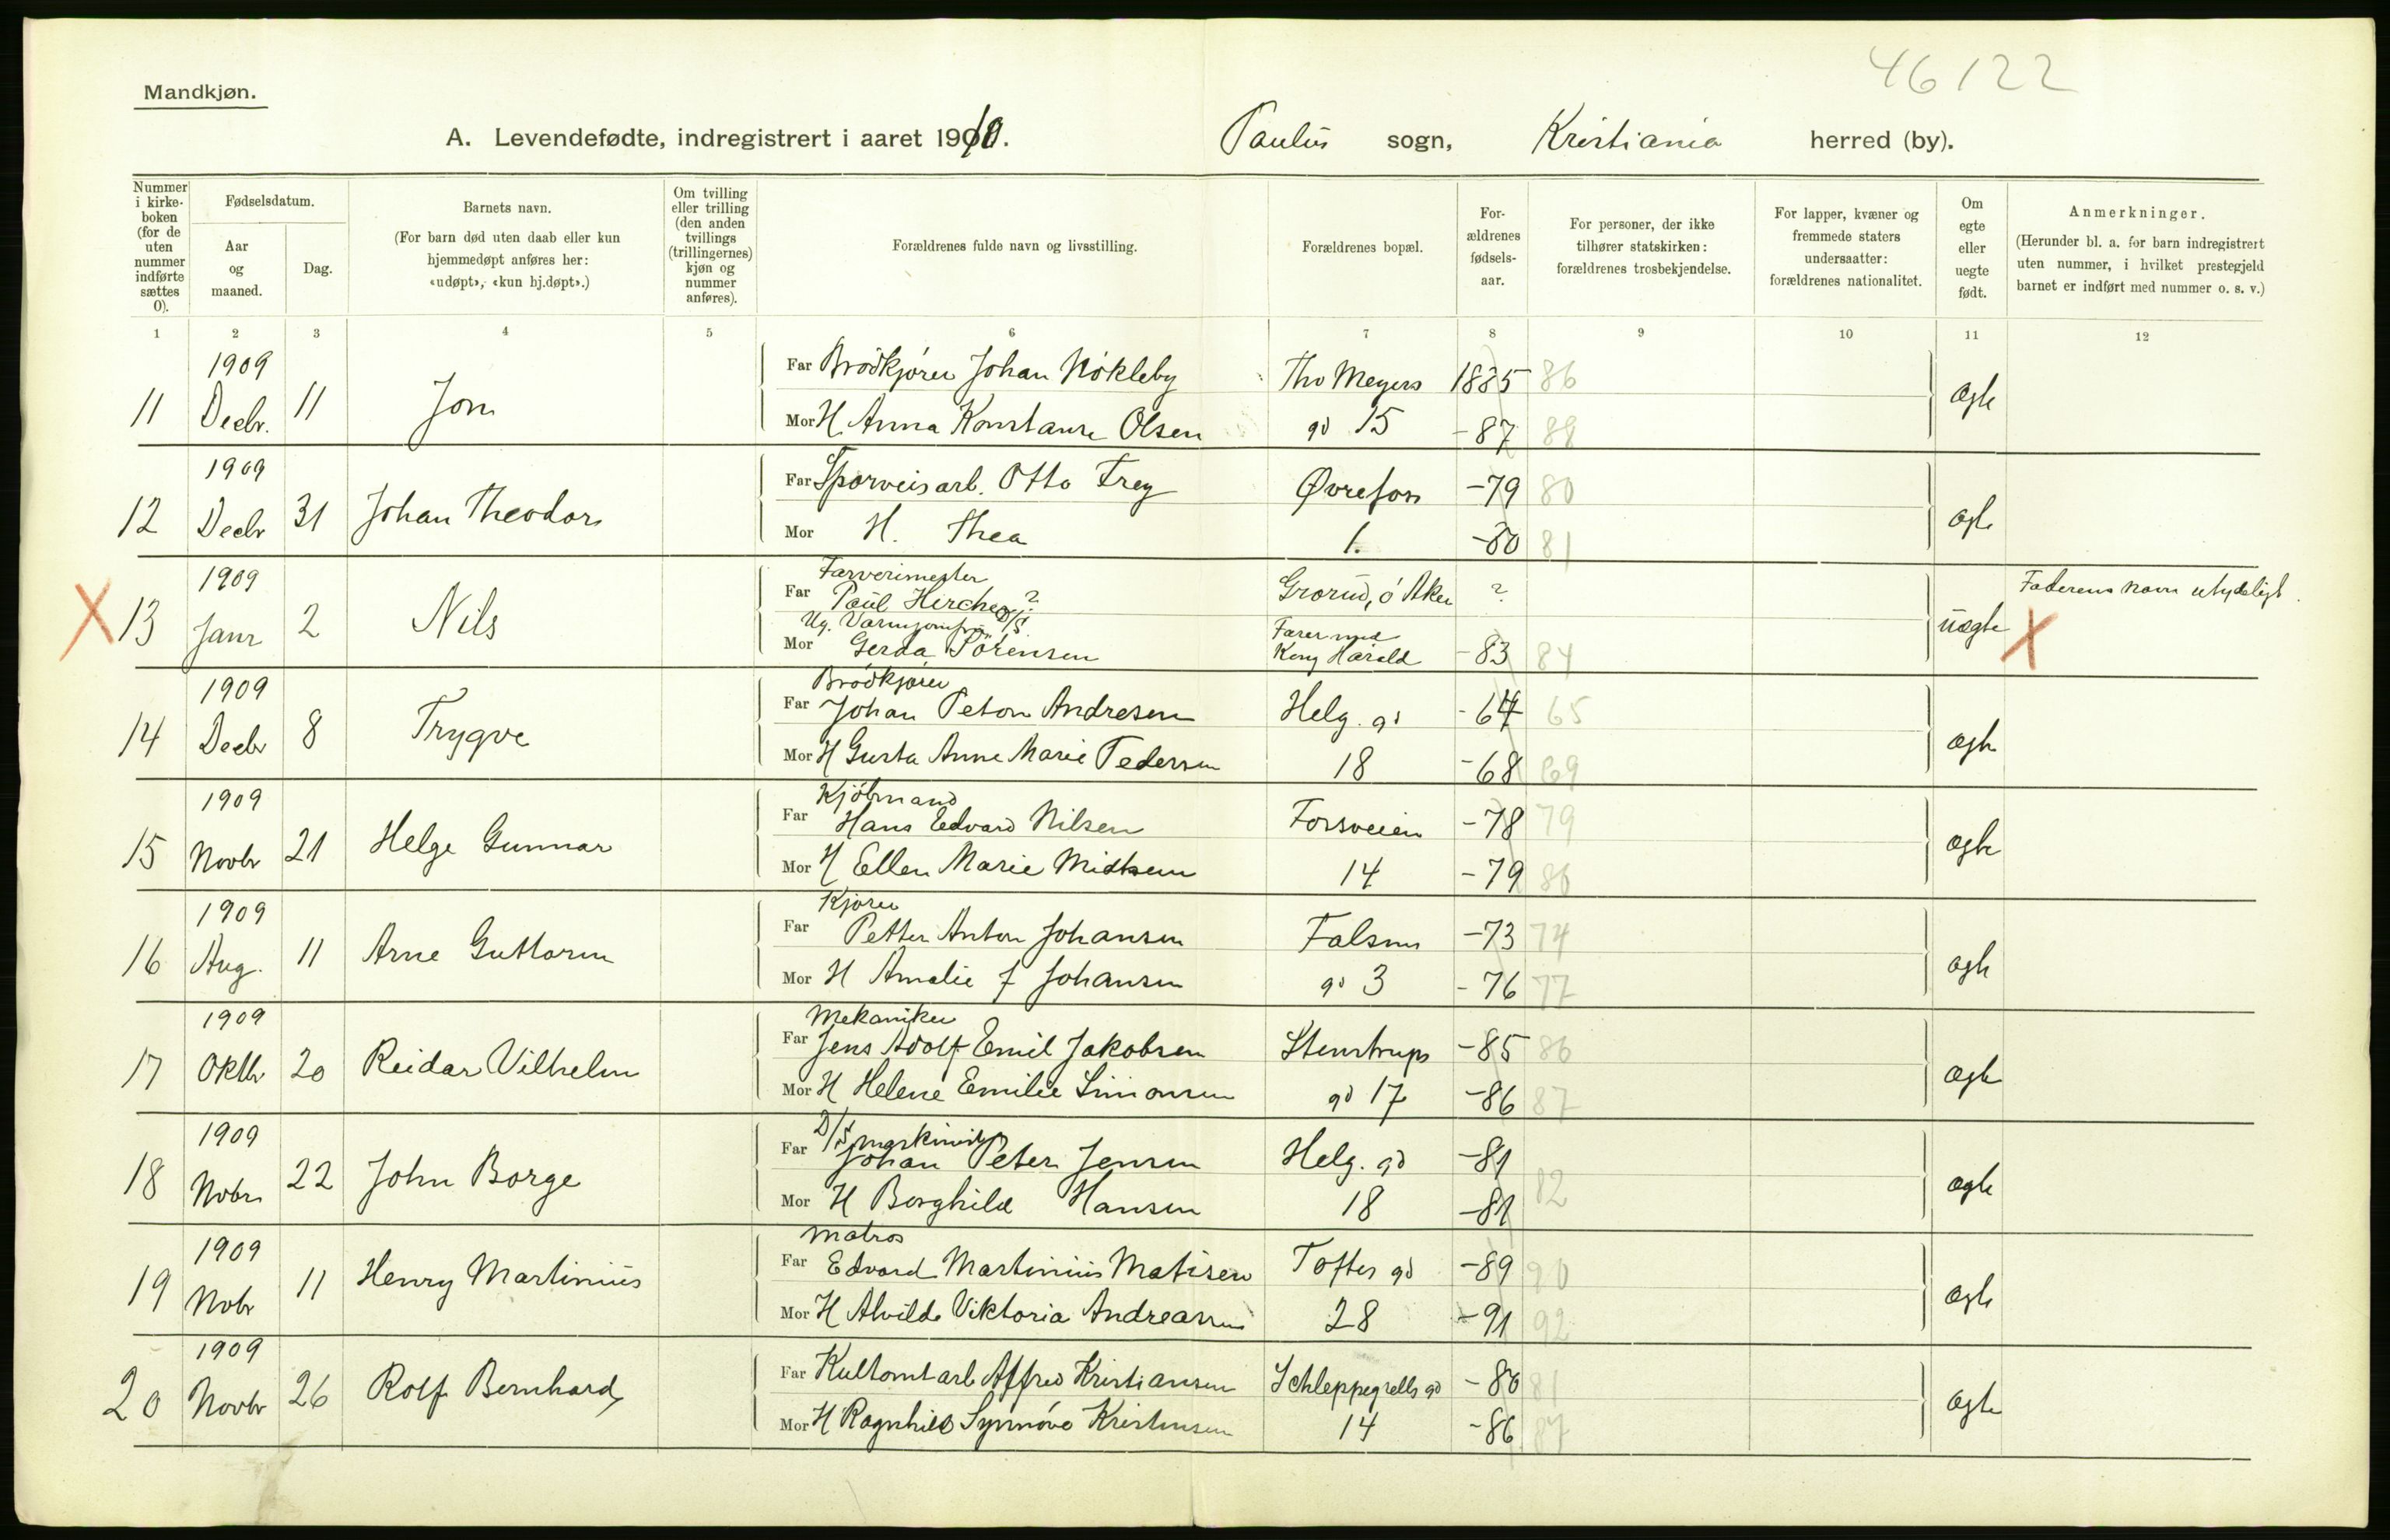 46122
Mandkjøn.
A. Levendefødte, indregistrert i aaret 1910. Paulus sogn, Kristiania herred (by).
Nummer i kirkeboken (for de uten nummer indførte sættes 0).
Fødselsdatum.
Aar og maaned.
Dag.
Barnets navn.
(For barn død uten daab eller kun hjemmedøpt anføres her: «udøpt», «kun hj.døpt».)
Om tvilling eller trilling (den anden tvillings (trillingernes) kjøn og nummer anføres).
Forældrenes fulde navn og livsstilling.
Forældrenes bopæl.
Forældrenes fødselsaar.
For personer, der ikke tilhører statskirken: forældrenes trosbekjendelse.
For lapper, kvæner og fremmede staters undersaatter: forældrenes nationalitet.
Om egte eller uegte født.
Anmerkninger.
(Herunder bl. a. for barn indregistrert uten nummer, i hvilket prestegjeld barnet er indført med nummer o. s. v.)
1 2 3 4 5 6 7 8 9 10 11 12
11 1909 Decbr. 11 Jon
Far Brödkjörer Johan Nökleby Thv Meyers 1885 86
Mor H. Anna Konstanse Olsen gd 15 -87 88 ægte
12 1909 Decbr 31 Johan Theodor
Far Sporveisarb. Otto Frey Øvrefoss -79 80
Mor H. Thea 1. -80 81 ægte
X 13 1909 Janr 2 Nils
Far Farverimester Paul Hircher? Grorud, ö Aker ? Faderens navn utydeligt.
Ug. Varmjomfru D/S
Mor Gerda Sörensen Farer med Kong Harald -83 84 uægte X
14 1909 Decbr 8 Trygve
Brödkjörer
Far Johan Peter Andresen Helg. gd -64 65
Mor H Gusta Anne Marie Pedersen 18 -68 69 ægte
15 1909 Novbr 21 Helge Gunnar
Kjöbmand
Far Hans Edvard Nilsen Fossveien -78 79
Mor H Ellen Marie Midtsem 14 -79 80 ægte
16 1909 Aug. 11 Arne Guttorm
Kjörer
Far Petter Anton Johansen Falsens -73 74
Mor H Amalie f Johansen gd 3 -76 77 ægte
17 1909 Oktbr 20 Reidar Vilhelm
Mekaniker
Far Jens Adolf Emil Jakobsen Stenstrups -85 86
Mor H Helene Emilie Simonsen gd 17 -86 87 ægte
18 1909 Nobr 22 John Borge
D/S maskinist
Far Johan Peter Jensen Helg. gd -81
Mor H Borghild Hansen 18 -81 82 ægte
19 1909 Nobr 11 Henry Martinius
Matros
Far Edvard Martinius Matisen Toftes gd -89 90
Mor H Alvilde Viktoria Andreassen 28 -91 92 ægte
20 1909 Novbr 26 Rolf Bernhard
Far Kultomtarb Alfred Kristiansen Schleppegrells gd -80 81
Mor H Ragnhild Synnöve Kristensen 14 -86 87 ægte